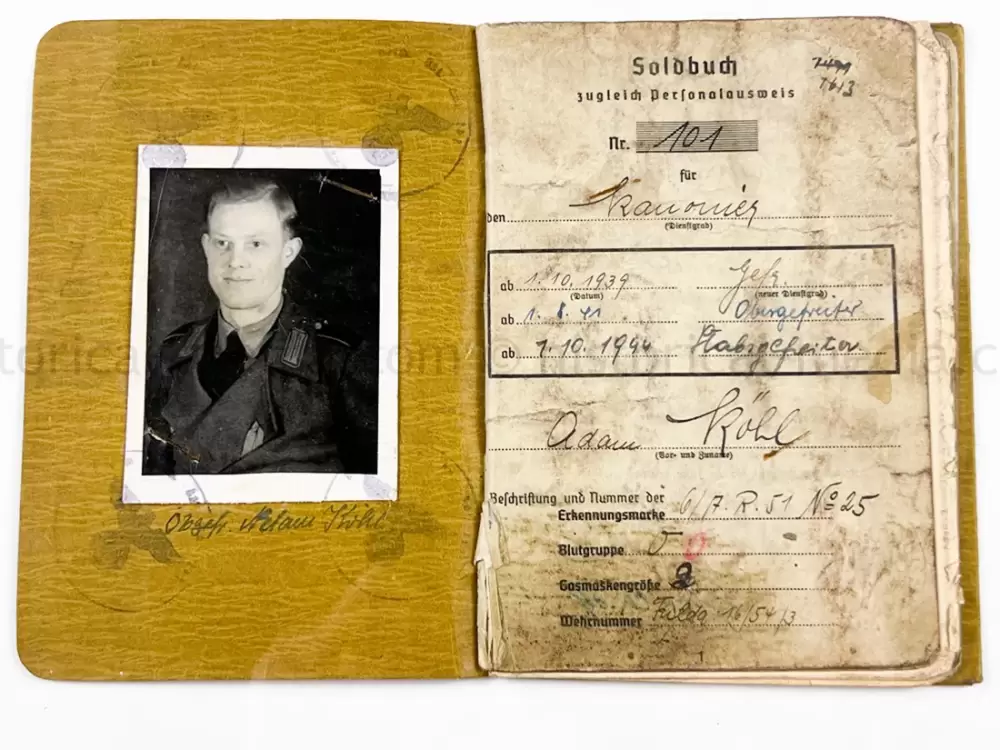 Obgefr. Adam Köhl
Soldbuch
zugleich Personalausweis
1613
Nr. 101
für
den Kanonier
(Dienstgrad)
ab 1.10.1939 Gefr.
(Datum) (neuer Dienstgrad)
ab 1.8.41 Obergefreiter
ab 1.10.1944 Stabsgefreiter
Adam Köhl
(Vor- und Zuname)
Beschriftung und Nummer der
Erkennungsmarke 6/A.R.51 No 25
Blutgruppe O
Gasmaskengröße 2
Wehrnummer Fulda 16/54/3
1